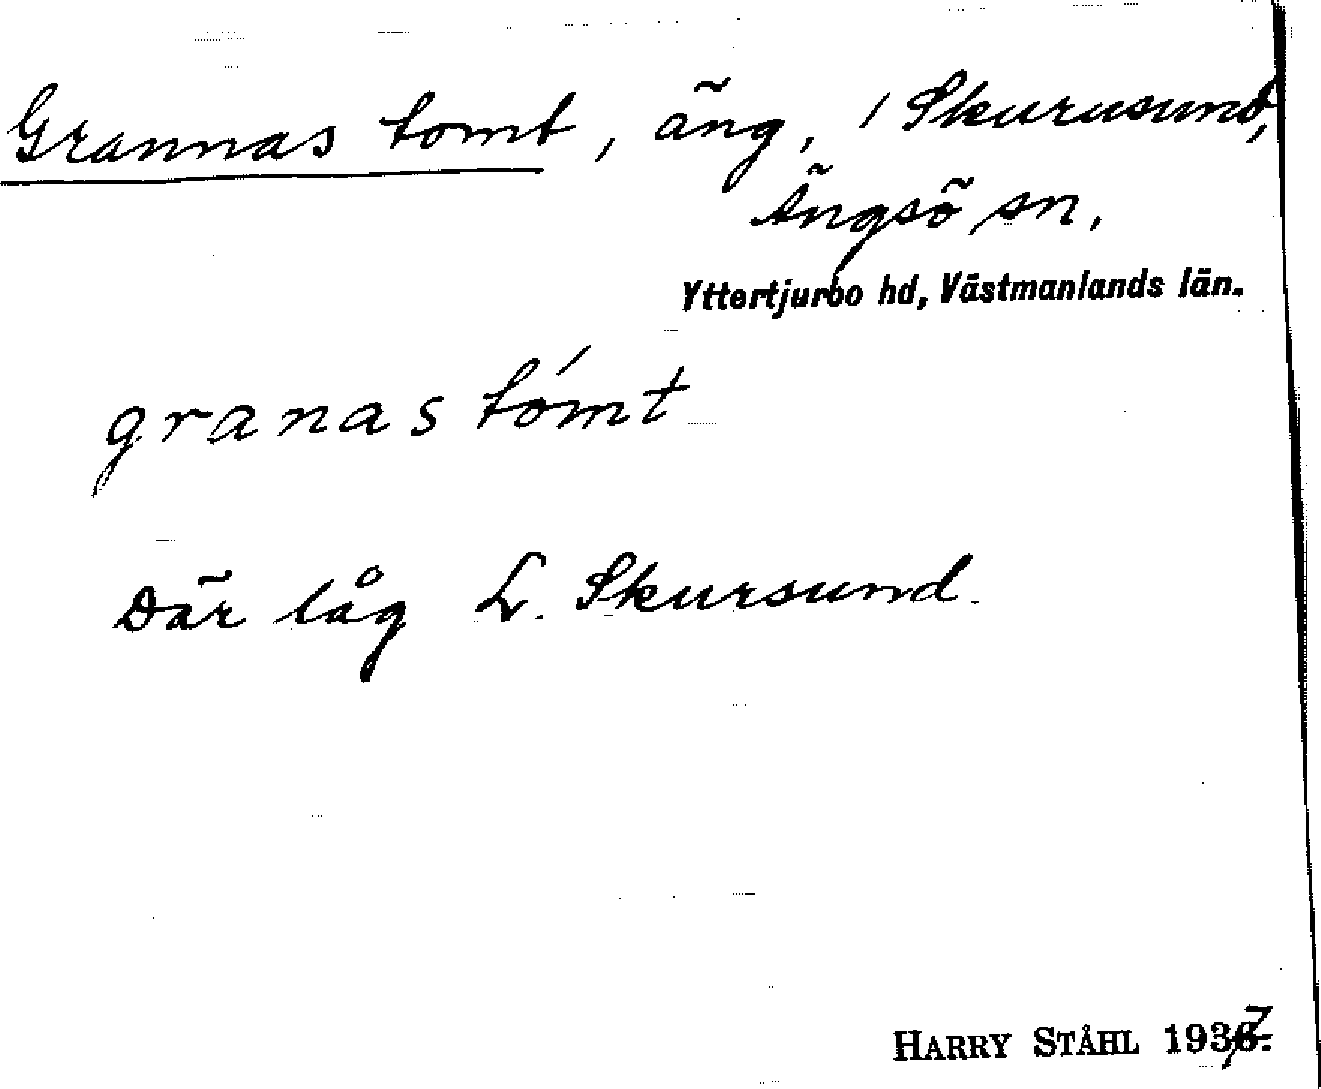 Grannas tomt, äng, / Skurusund,
Ängsö sn,
Yttertjurbo hd, Västmanlands län.
granas tómt
Där låg L. Skursund.
HARRY STÅHL 1937.